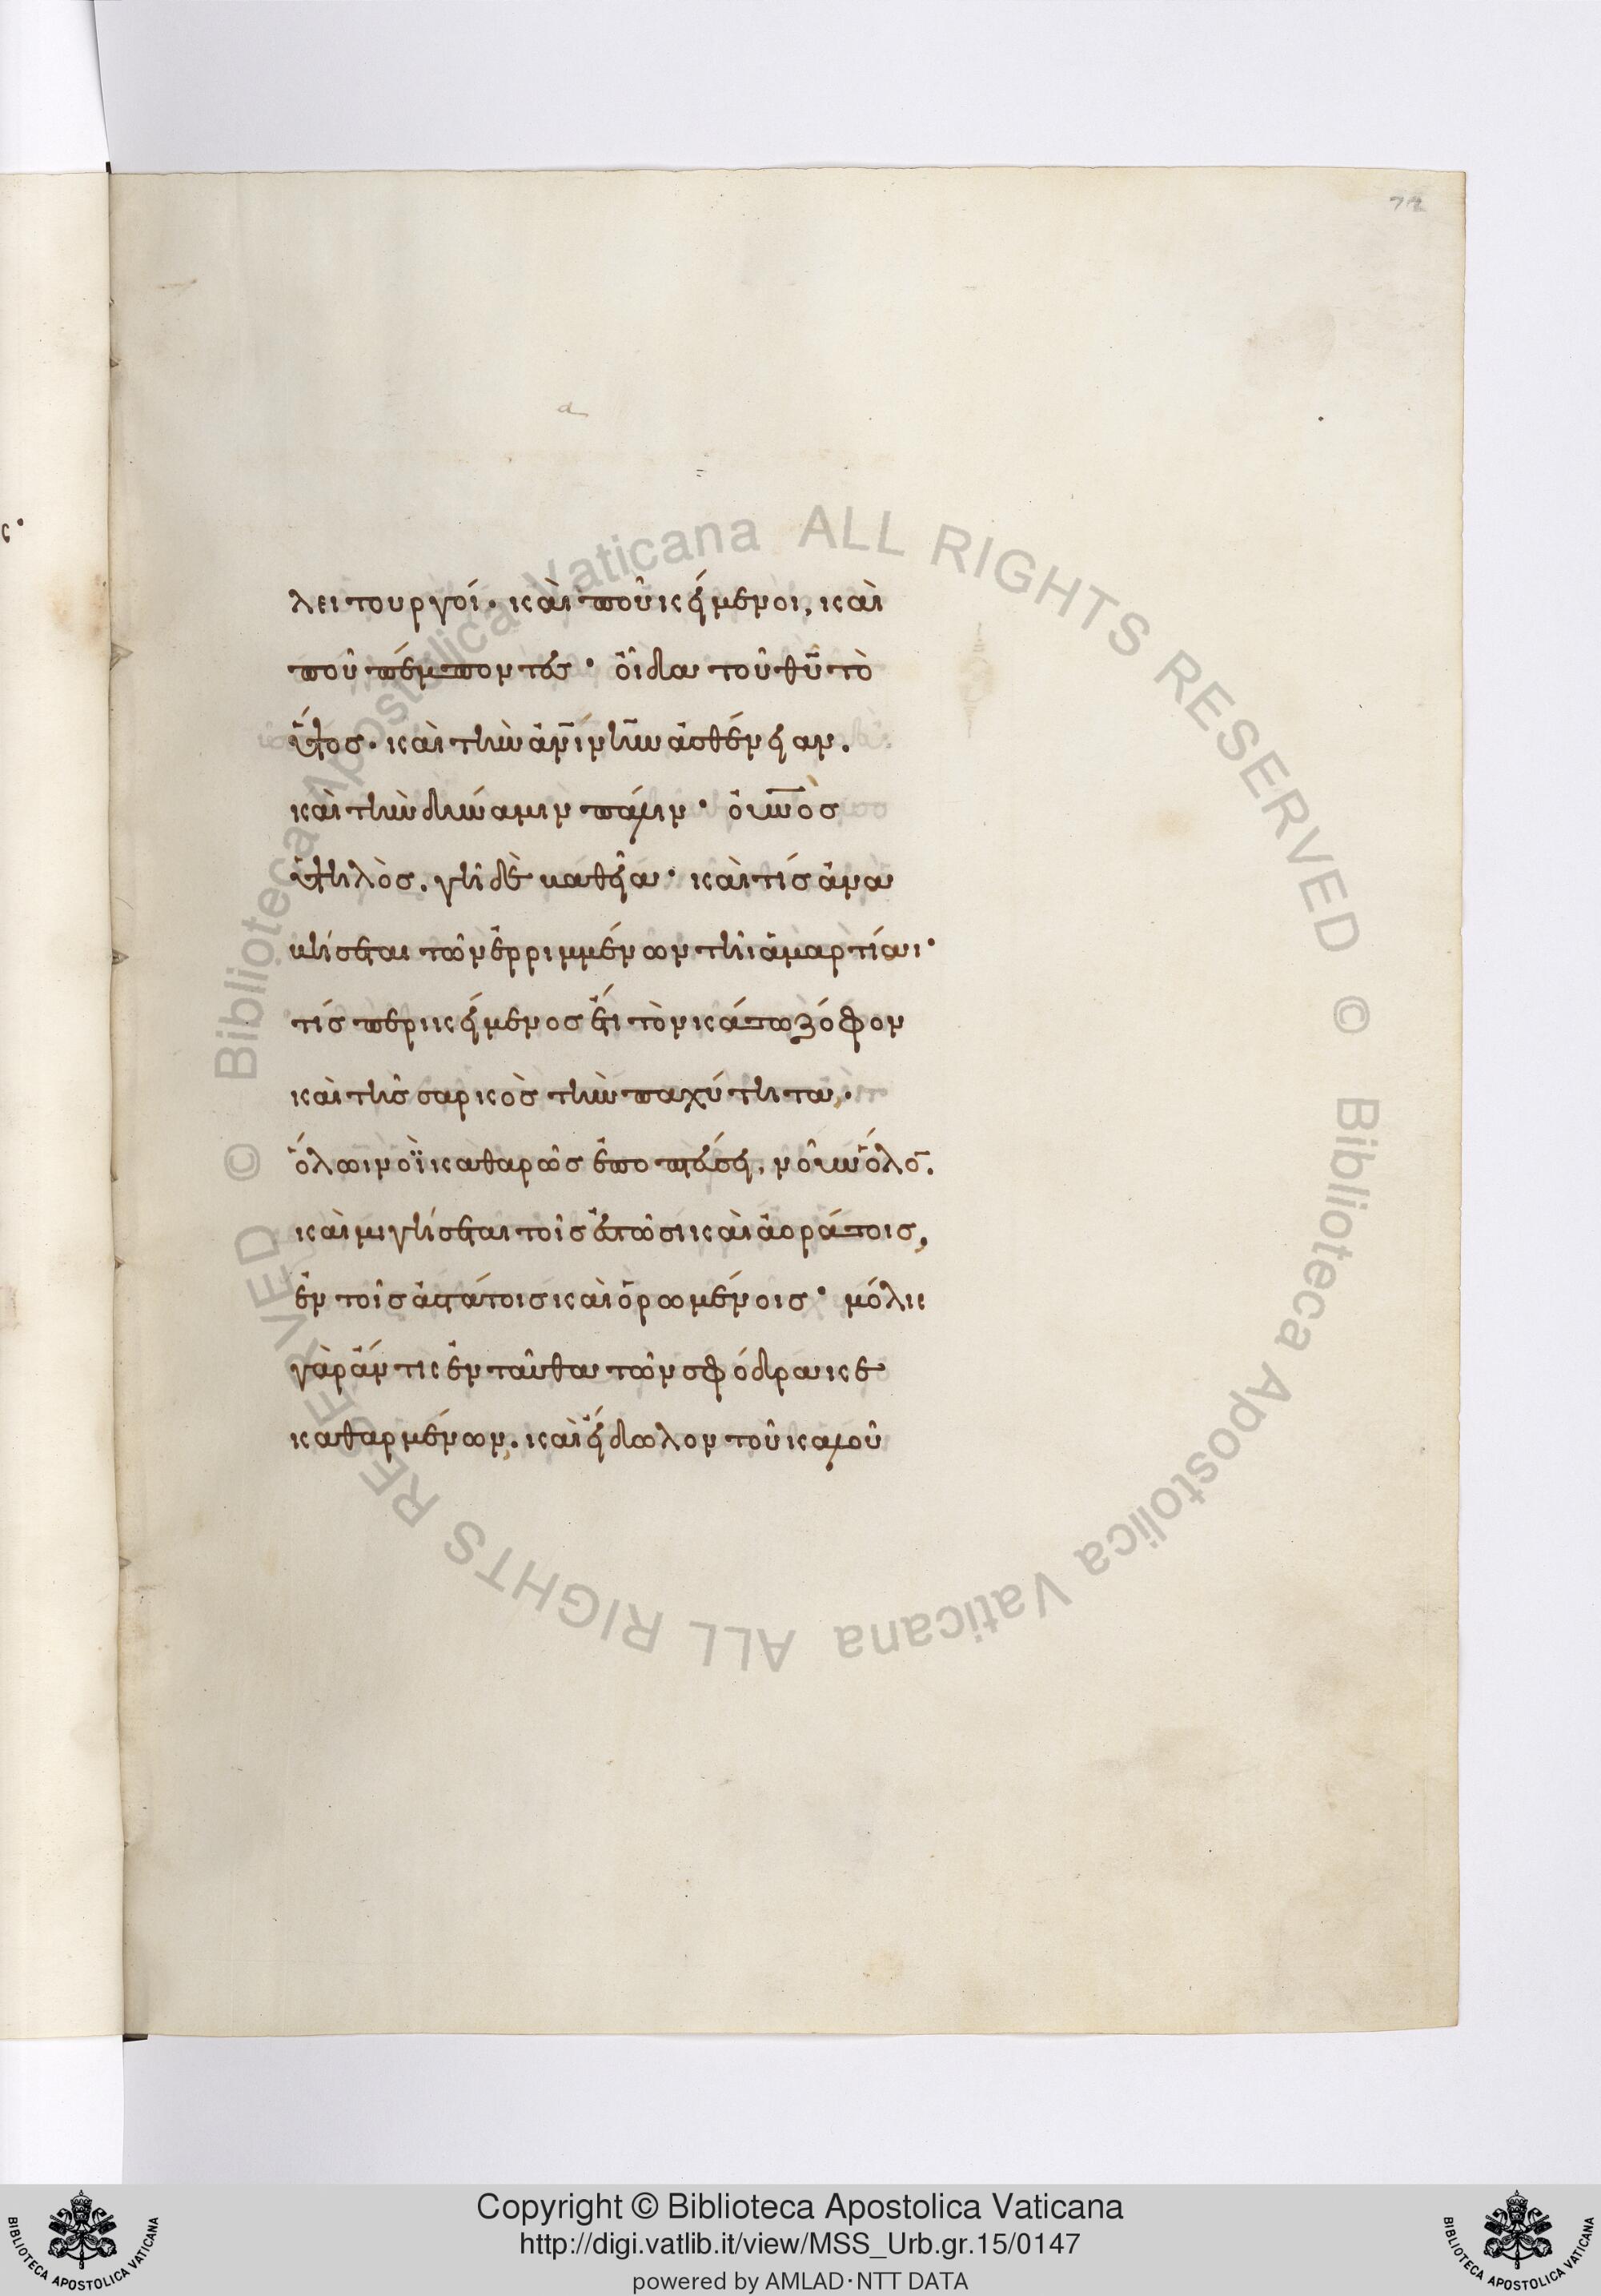 72
λειτουργοί· καὶ ποῦ κείμενοι, καὶ
ποῦ πέμποντες· οἶδα τοῦ θῦ τὸ
ὕψος· καὶ τὴν ἀνίνην ἀσθένειαν.
καὶ τὴν δύναμιν πάλιν· οὐνὸς
ὑψηλὸς. γῆ δὲ βαθεῖα· καὶ τίς ἀνα
βήσεται τῶν ἐρριμμένων τῆι ἁμαρτίαι·
τίς περικείμενος ἔτι τὸν κάτω ζόφον
καὶ τῆς σαρκὸς τὴν παχύτητα,
ὅλωι νοῒ καθαρῶς ἐποπτεύσει, νοῦν ὅλο̄.
καὶ μιγήσεται τοῖς ἑστῶσι καὶ ἀοράτοις,
ἐν τοῖς ἀστάτοις καὶ ὁρωμένοις· μόλις
γὰρ ἄν τις ἐνταῦθα τῶν σφόδρα κε
καθαρμένων, καὶ εἴδωλον τοῦ καλοῦ
© Biblioteca Apostolica Vaticana ALL RIGHTS RESERVED
© Biblioteca Apostolica Vaticana ALL RIGHTS RESERVED
Copyright © Biblioteca Apostolica Vaticana
http://digi.vatlib.it/view/MSS_Urb.gr.15/0147
powered by AMLAD·NTT DATA
BIBLIOTECA APOSTOLICA VATICANA
BIBLIOTECA APOSTOLICA VATICANA